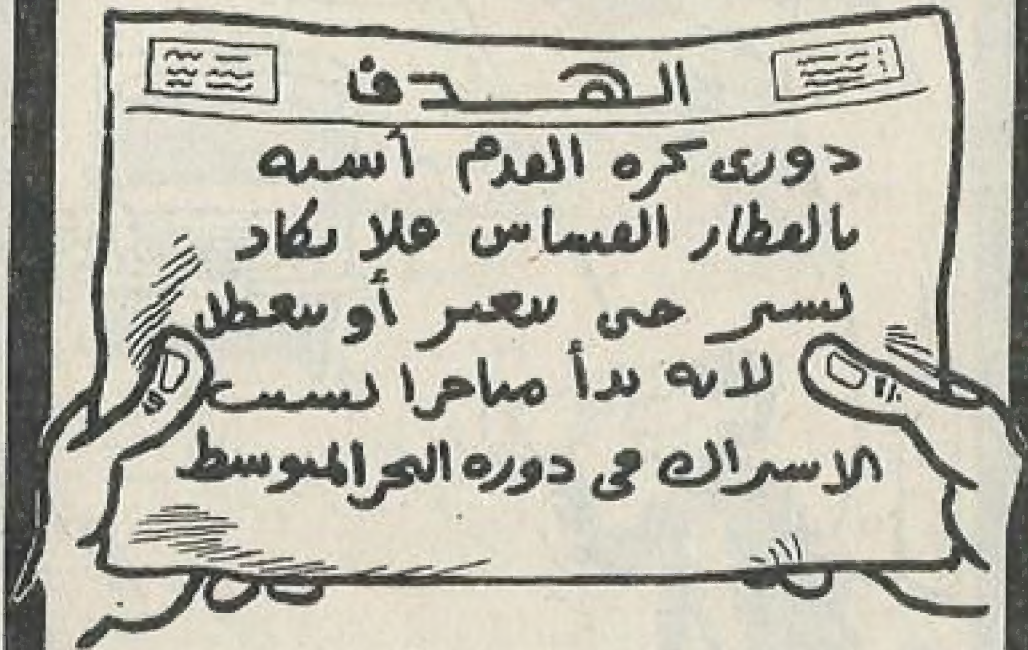 الهدف
دورى كرة القدم أشبه
بالقطار القشاش فلا يكاد
يسير حتى يتعثر أو يتعطل
لانه بدأ متاخرا بسبب
الاشتراك فى دورة البحر المتوسط